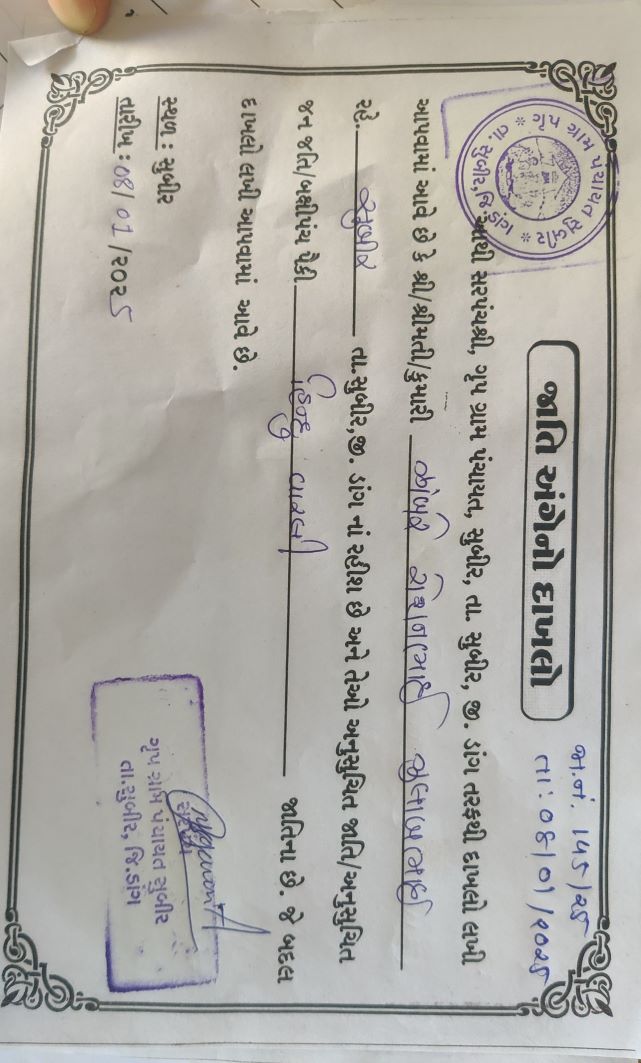 જાતિ અંગેનો દાખલો
જા.નં. ૧૫૬/૨૫
તા:૦૬/૦૧/૨૦૨૫
ગ્રુપ ગ્રામ પંચાયત સુબીર * તા. સુબીર, જિ. ડાંગ *
આથી સરપંચશ્રી, ગ્રુપ ગ્રામ પંચાયત, સુબીર, તા. સુબીર, જી. ડાંગ તરફથી દાખલો લખી
આપવામાં આવે છે કે શ્રી/શ્રીમતી/કુમારી ગુલાબભાઈ
રહે. સુબીર તા.સુબીર,જી. ડાંગ નાં રહીશ છે અને તેઓ અનુસુચિત જાતિ/અનુસુચિત
જન જાતિ/બક્ષીપંચ પૈકી હિન્દુ વારલી જાતિના છે. જે બદલ
દાખલો લખી આપવામાં આવે છે.
સ્થળ : સુબીર
તારીખ : ૦૬/૦૧/૨૦૨૫
સરપંચ
ગ્રુપ ગ્રામ પંચાયત સુબીર
તા.સુબીર, જિ.ડાંગ